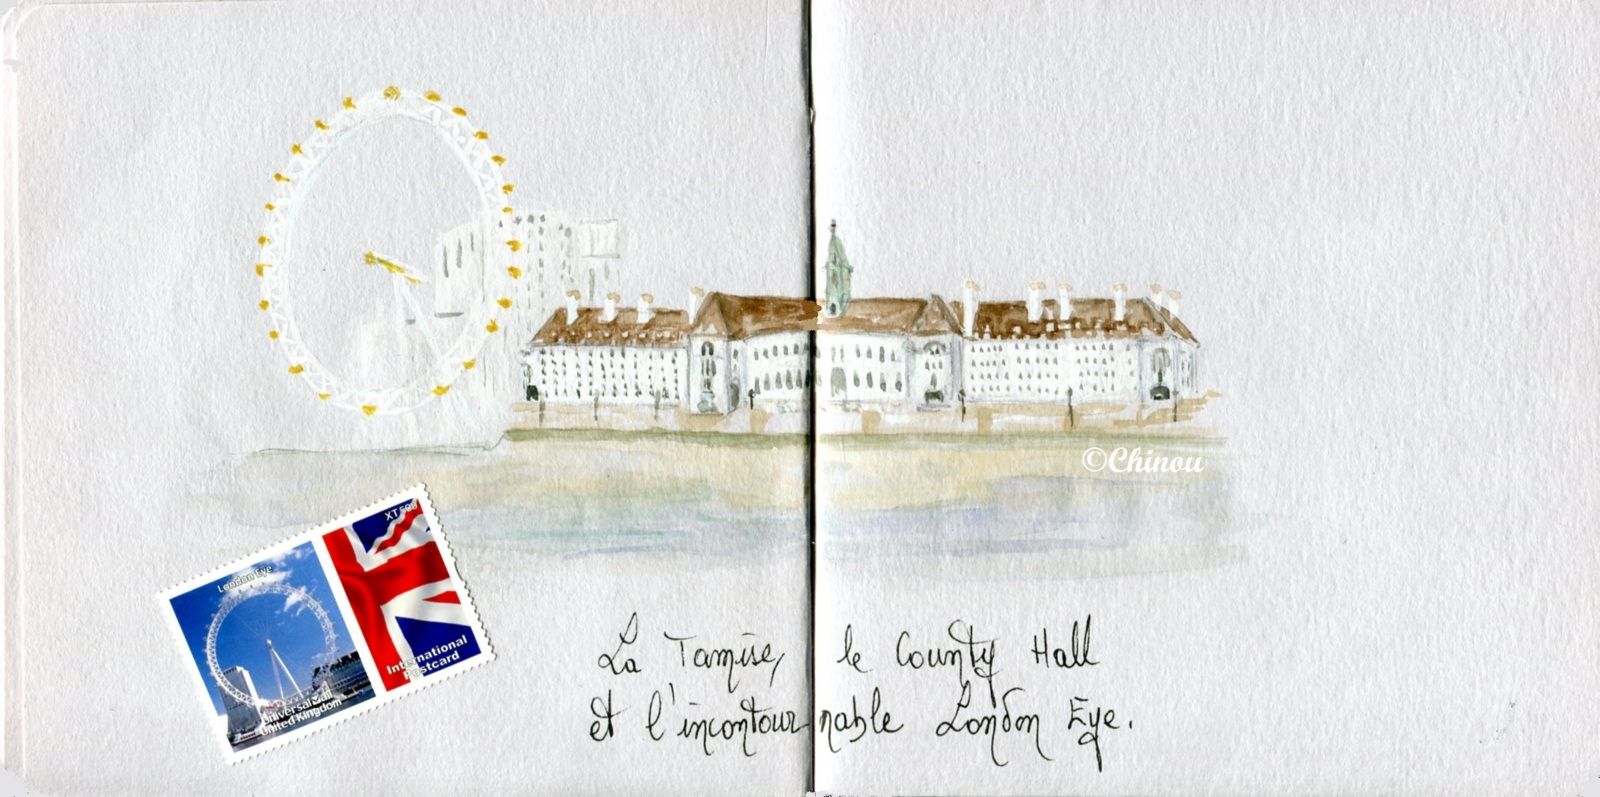 ©Chinou
London Eye
XT 593
International
Postcard
Universal Mail
United Kingdom
La Tamise, le County Hall
et l'incontournable London Eye.